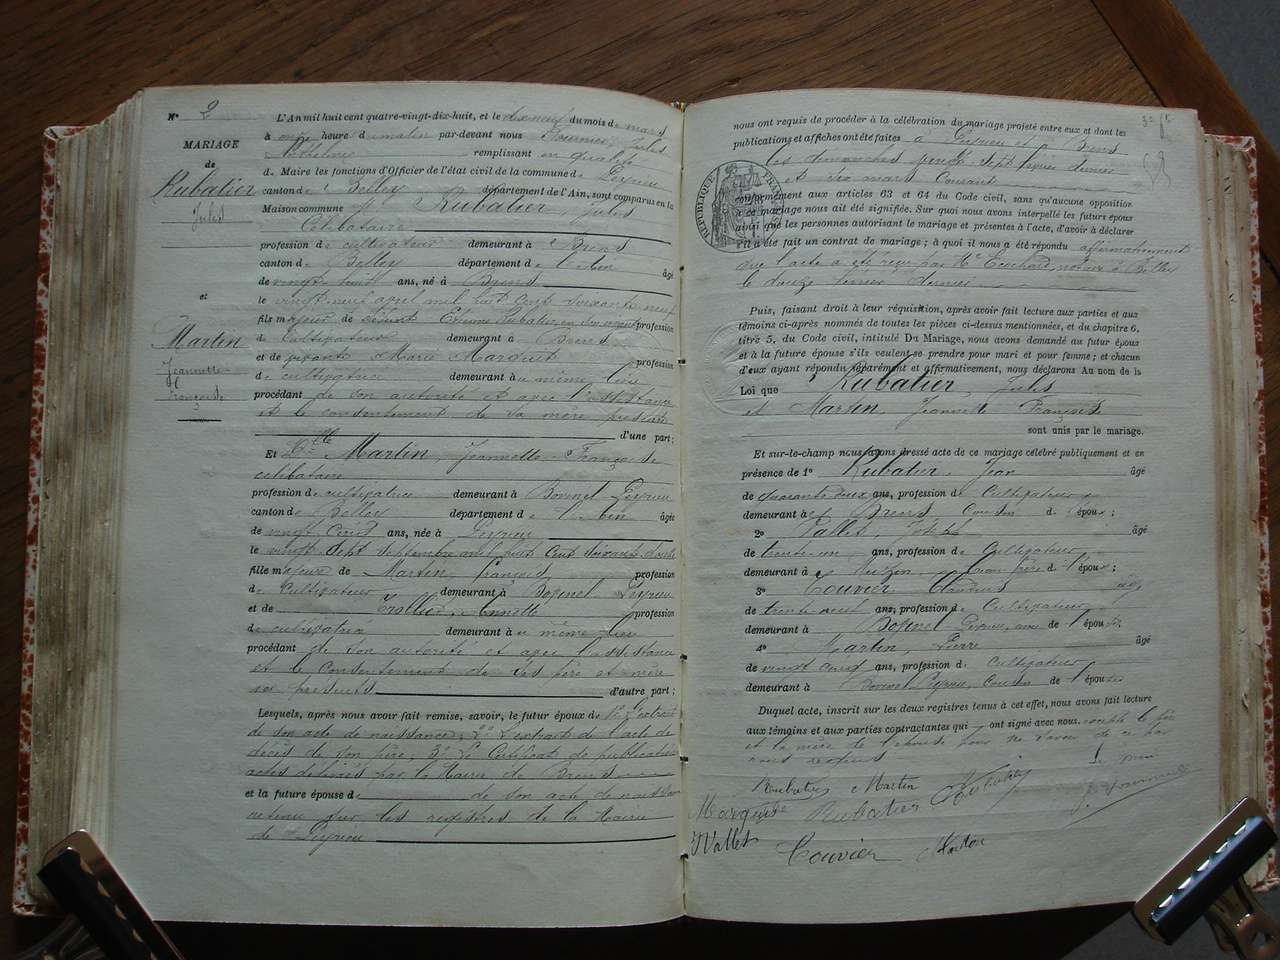 N° 2
MARIAGE
de
Rubatier
Jules
et
Martin
Jeannette
Françoise
L'An mil huit cent quatre-vingt-dix-huit, et le dix neuf du mois de mars
à onze heure du matin par-devant nous Fournier, Jules
Anthelme remplissant en qualité
de Maire les fonctions d'Officier de l'état civil de la commune de Peyrieu
canton de Belley département de l'Ain, sont comparus en la
Maison commune Mr Rubatier Jules
Célibataire
profession de cultivateur demeurant à Brens
canton de Belley département de l'Ain âgé
de vingt huit ans, né à Brens
le vingt neuf avril mil huit cent soixante neuf
fils majeur de défunt Etienne Rubatier, en son vivant profession
de Cultivateur demeurant à Brens
et de vivante Marie Marquis profession
de cultivatrice demeurant au même lieu
procédant de son autorité et avec l'assistance
et le consentement de sa mère présente
d'une part;
Et Dlle Martin, Jeannette Françoise
célibataire
profession de cultivatrice demeurant à Bovinel Peyrieu
canton de Belley département de l'Ain âgée
de vingt cinq ans, née à Peyrieu
le vingt sept septembre mil huit cent soixante douze
fille majeure de Martin, françois profession
de Cultivateur demeurant à Bovinel Peyrieu
et de Trollier Annette profession
de cultivatrice demeurant au même lieu
procédant de son autorité et avec l'assistance
et le consentement de ses père et mère
ici présents d'autre part;
Lesquels, après nous avoir fait remise, savoir, le futur époux de 1° l'extrait
de son acte de naissance; 2° L'extrait de l'acte de
décès de son père, 3° Le Certificat de publication
actes délivrés par la Mairie de Brens
et la future épouse de de son acte de naissance
retenu par les registres de la Mairie
de Peyrieu
nous ont requis de procéder à la célébration du mariage projeté entre eux et dont les
publications et affiches ont été faites à Peyrieu et Brens
les dimanches vingt sept février dernier
et six mars courant
RÉPUBLIQUE FRANÇAISE
conformément aux articles 63 et 64 du Code civil, sans qu'aucune opposition
à ce mariage nous ait été signifiée. Sur quoi nous avons interpellé les futurs époux
ainsi que les personnes autorisant le mariage et présentes à l'acte, d'avoir à déclarer
s'il a été fait un contrat de mariage; à quoi il nous a été répondu affirmativement
que l'acte a été reçu par Me notaire à Belley
le douze février dernier
Puis, faisant droit à leur réquisition, après avoir fait lecture aux parties et aux
témoins ci-après nommés de toutes les pièces ci-dessus mentionnées, et du chapitre 6,
titre 5, du Code civil, intitulé Du Mariage, nous avons demandé au futur époux
et à la future épouse s'ils veulent se prendre pour mari et pour femme; et chacun
d'eux ayant répondu séparément et affirmativement, nous déclarons Au nom de la
Loi que Rubatier, Jules
et Martin, Jeannette Françoise
sont unis par le mariage.
Et sur-le-champ nous avons dressé acte de ce mariage célébré publiquement et en
présence de 1° Rubatier, Jean âgé
de quarante deux ans, profession de Cultivateur
demeurant à Brens Cousin de l'époux;
2° Vallet, Joseph âgé
de trente un ans, profession de Cultivateur
demeurant à beau frère de l'époux;
3° Couvier Claudius âgé
de trente neuf ans, profession de Cultivateur
demeurant à Bovinel Peyrieu, ami de l'épouse
4° Martin, Pierre âgé
de vingt cinq ans, profession de Cultivateur
demeurant à Bovinel Peyrieu, Cousin de l'épouse
Duquel acte, inscrit sur les deux registres tenus à cet effet, nous avons fait lecture
aux témoins et aux parties contractantes qui ont signé avec nous excepté le père
et la mère de l'épouse pour ne savoir de ce par
nous requis
Le Maire
Rubatier Martin
Marquise Rubatier J. Fournier
J Vallet Couvier Martin